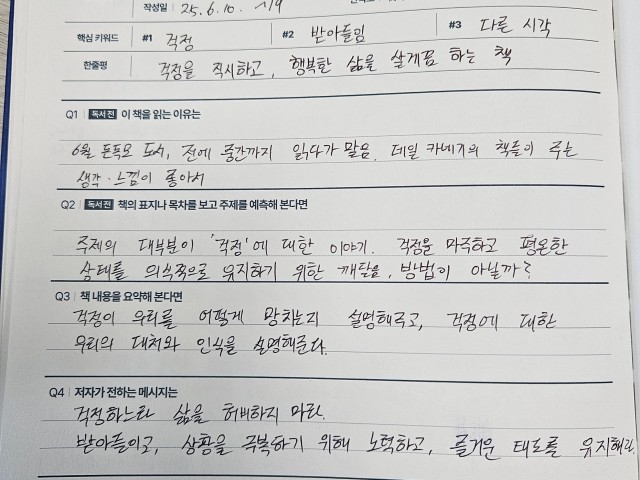 작성일 25. 6. 10. ~19
핵심 키워드 #1 걱정 #2 받아들임 #3 다른 시각
한줄평 걱정을 직시하고, 행복한 삶을 살게끔 하는 책
Q1 독서 전 이 책을 읽는 이유는
6월 독모 도서, 전에 중간까지 읽다가 말음. 데일 카네기의 책들이 주는
생각·느낌이 좋아서
Q2 독서 전 책의 표지나 목차를 보고 주제를 예측해 본다면
주제의 대부분이 '걱정'에 대한 이야기. 걱정을 마주하고 평온한
상태를 의식적으로 유지하기 위한 깨달음, 방법이 아닐까?
Q3 책 내용을 요약해 본다면
걱정이 우리를 어떻게 망치는지 설명해주고, 걱정에 대한
우리의 대처와 인식을 설명해준다.
Q4 저자가 전하는 메시지는
걱정하느라 삶을 허비하지 마라.
받아들이고, 상황을 극복하기 위해 노력하고, 즐거운 태도를 유지해라.